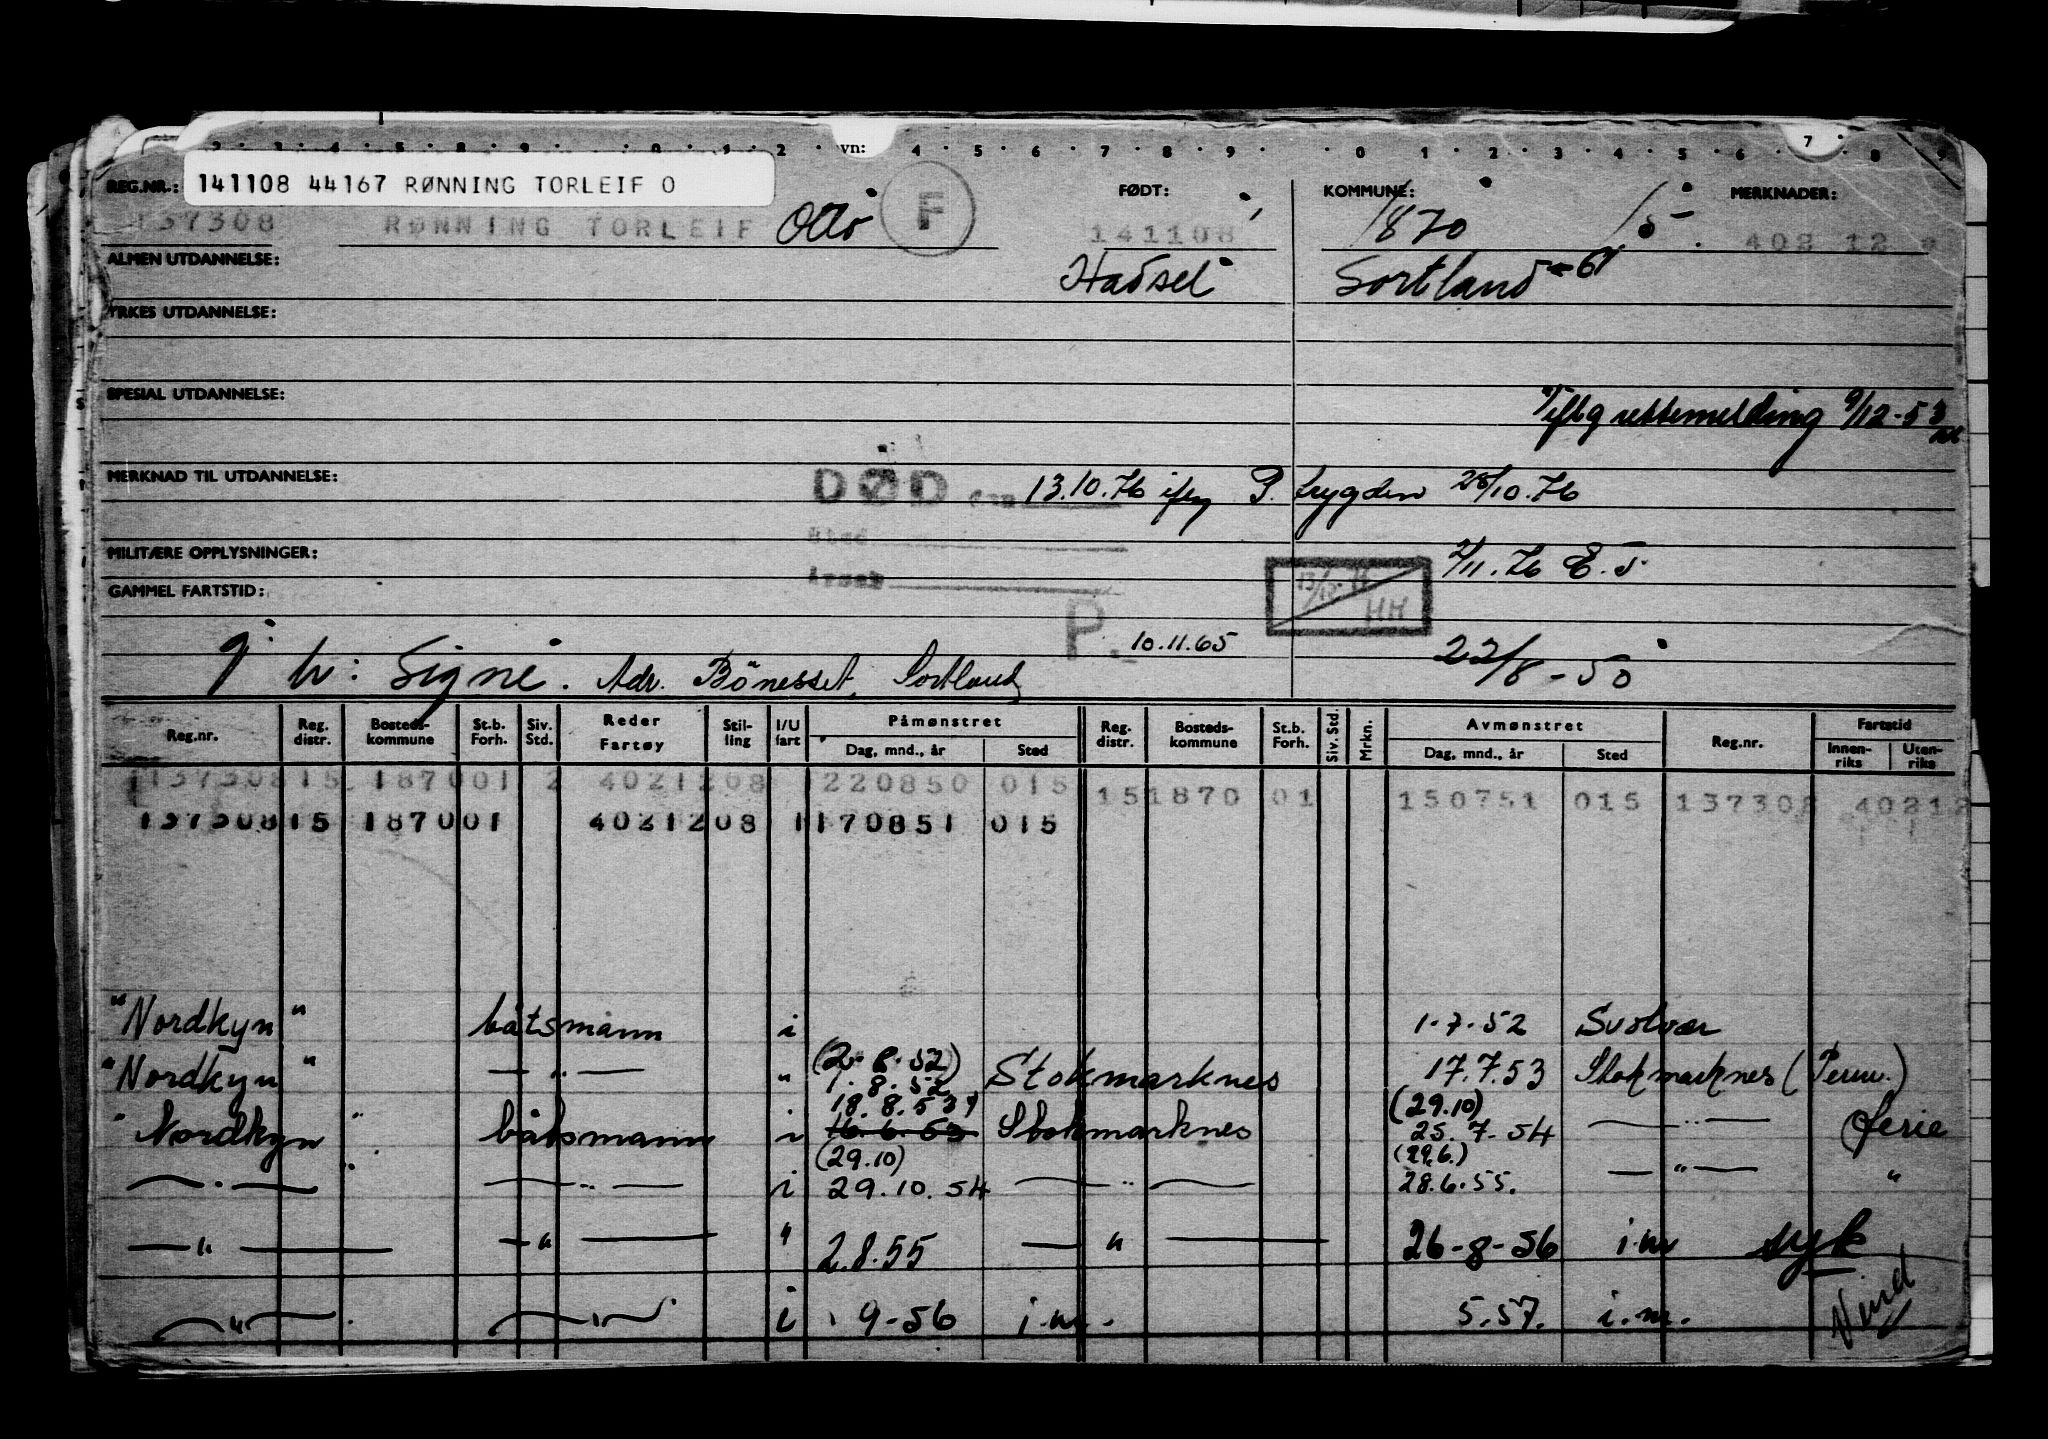 2 . 3 . 4 . 5 . 8 . 9 . 0 . 1 . 2 . vn: 4 . 5 . 6 . 7 . 8 . 9 . 0 . 1 . 2 . 3 . 4 . 5 . 6 . 7 . 8 . 9
REG.NR.: 141108 44167 RØNNING TORLEIF O FØDT: KOMMUNE: MERKNADER:
137308 RØNNING TORLEIF Otto F 141108 1870 15 402 12
ALMEN UTDANNELSE: Hadsel Sortland - 61
YRKES UTDANNELSE:
SPESIAL UTDANNELSE: rettemelding 9/12-53
MERKNAD TIL UTDANNELSE: DØD den 13.10.76 iflg P. trygden 28/10.76
Sted
MILITÆRE OPPLYSNINGER: 2/11.76 E.J.
Årsak HH
GAMMEL FARTSTID:
P. 10.11.65
g. h: Signe. Adr. Bönesset, Sortland 22/8-50
Reg.nr. Reg. distr. Bosteds-kommune St.b. Forh. Siv. Std. Reder Fartøy Stil-ling I/U fart Påmønstret Dag, mnd., år Sted Reg. distr. Bosteds-kommune St.b. Forh. Siv. Std. Mrkn. Avmønstret Dag, mnd., år Sted Reg.nr. Fartstid Innen-riks Uten-riks
113730815 187001 2 4021208 1220850 015 151870 01 150751 015 137308 40212
13730815 187001 4021208 1170851 015
"Nordkyn" båtsmann i 1.7.52 Svolvær
"Nordkyn" — " — " (2.8.52) 1.8.52 Stokmarknes 17.7.53 Stokmarknes (Perm.)
"Nordkyn" båtsmann i 18.8.53 16.6.53 Stokmarknes (29.10) 25.7.54 — " — (ferie
— " — — " — i (29.10) 29.10.54 — " — (29.6.) 28.6.55. — " — "
— " — — " — " 2.8.55 — " — 26-8-56 i.m syk
— " — — " — i 9-56 i.m. 5.57. i.m.